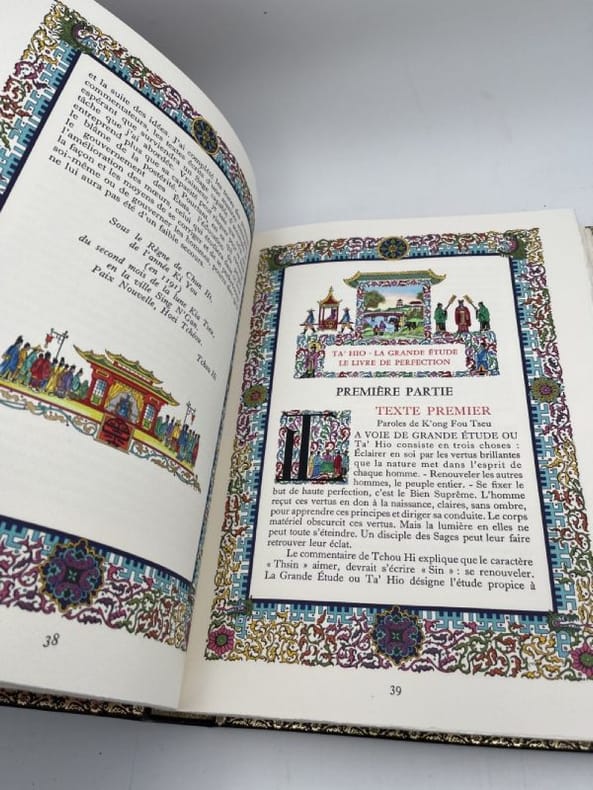 et la suite des idées, j'ai complété les
commentateurs, les textes
espérant que surviendra un Sage
tâche que j'ai abordée. Vraiment
entreprend plus que sa capacité peut
le blâme de la postérité. Pourtant, pour
le gouvernement des États
l'amélioration des mœurs, celui qui
la façon et les moyens de se corriger
soi-même ou de gouverner les hommes,
ne lui aura pas été d'un faible secours.
Sous le Règne de Chun Hi,
de l'année Ki You
(en 1191)
du second mois de la lune Kia Tseu,
en la ville Sing N'Gan,
Paix Nouvelle, Hoei Tchéou,
Tchou Hi.
38
TA' HIO · LA GRANDE ÉTUDE
LE LIVRE DE PERFECTION
PREMIÈRE PARTIE
TEXTE PREMIER
Paroles de K'ong Fou Tseu
LA VOIE DE GRANDE ÉTUDE OU
Ta' Hio consiste en trois choses :
Éclairer en soi par les vertus brillantes
que la nature met dans l'esprit de
chaque homme. - Renouveler les autres
hommes, le peuple entier. - Se fixer le
but de haute perfection, c'est le Bien Suprême. L'homme
reçut ces vertus en don à la naissance, claires, sans ombre,
pour apprendre ces principes et diriger sa conduite. Le corps
matériel obscurcit ces vertus. Mais la lumière en elles ne
peut toute s'éteindre. Un disciple des Sages peut leur faire
retrouver leur éclat.
Le commentaire de Tchou Hi explique que le caractère
« Thsin » aimer, devrait s'écrire « Sin » : se renouveler.
La Grande Étude ou Ta' Hio désigne l'étude propice à
39